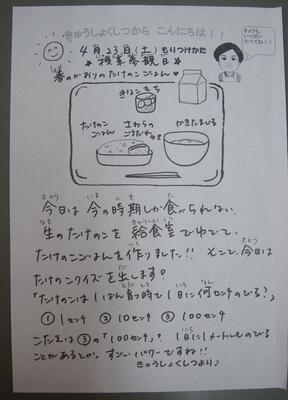 きゅうしょくしつから こんにちは!!
4月23日(土)もりつけかた
★授業参観日★
春のかおりのたけのこごはん♥
きょうも、
いっぱい
たべてね!!
きなこもち
たけのこ
ごはん
さわらの
ごまだれやき
かきたまじる
今日は 今の時期しか食べられない
生のたけのこを 給食室でゆでて、
たけのこごはんを作りました!! そこで、今日は
たけのこクイズを出します?
「たけのこは1ばん育つ時で1日に何センチのびる?」
①1センチ ②10センチ ③100センチ
こたえは③の「100センチ」? 1日に1メートルものびる
ことがあるとか。すごいパワーですね!!
きゅうしょくしつより♪